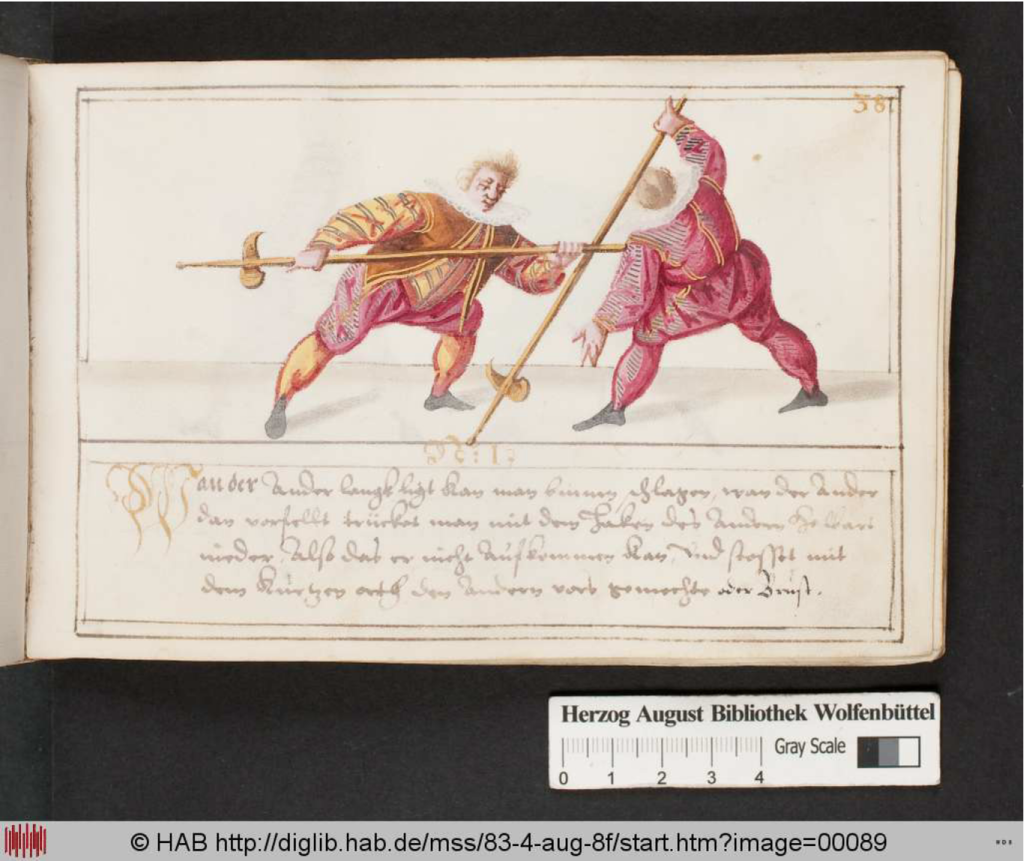 38.
N: 1.
Wan der Ander langk ligt kan man binnen schlagen, wan der Ander
dan vorfellt trücket man mit dem haken des Andern
nieder, Also das er nicht Aufkommen kan, Und stosset mit
dem kurtzen orth den Andern vors gemechte oder Brust.
Herzog August Bibliothek Wolfenbüttel
Gray Scale
0 1 2 3 4
© HAB http://diglib.hab.de/mss/83-4-aug-8f/start.htm?image=00089